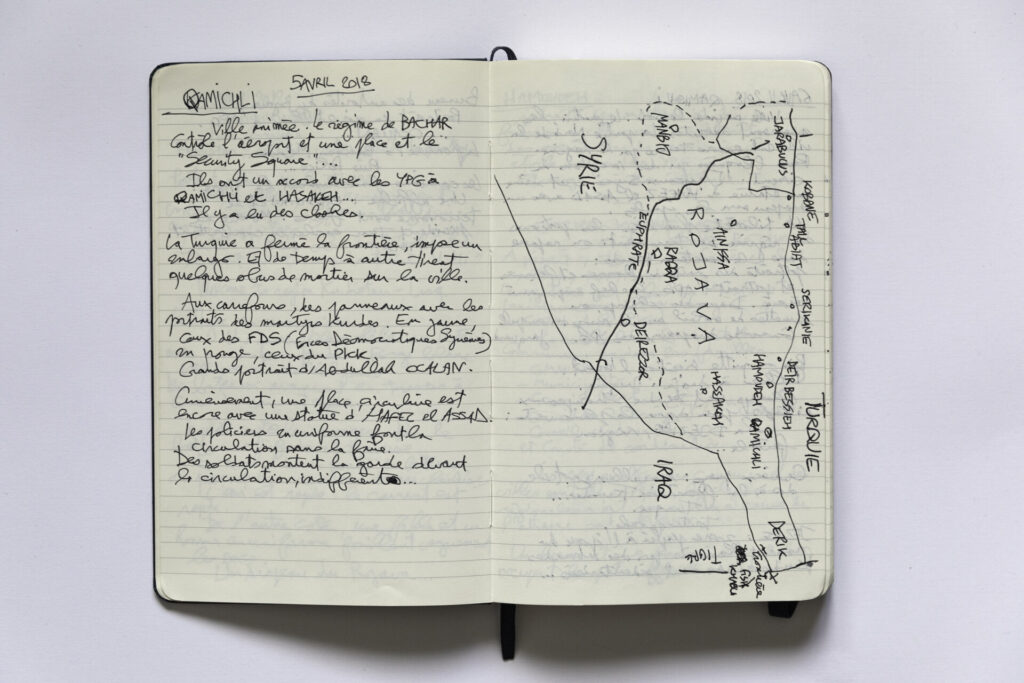 5 AVRIL 2018
QAMICHLI
Ville animée. Le régime de BACHAR
contrôle l'aéroport et une place et le
"Security Square"...
Ils ont un accord avec les YPG à
QAMICHLI et HASAKEH...
Il y a eu des clashes.
La Turquie a fermé la frontière, impose un
embargo. Et de temps à autre tirent
quelques obus de mortier sur la ville.
Aux carrefours, des panneaux avec les
portraits des martyrs kurdes. En jaune,
ceux des FDS (Forces Démocratiques Syriennes)
en rouge, ceux du PKK.
Grands portrait d'Abdullah OCALAN.
Curieusement, une place circulaire est
encore avec une statue d'HAFEZ el ASSAD.
Les policiers en uniforme font la
circulation sous la
Des soldats montent la garde devant
la circulation, indifférents...
SYRIE
MANBIJ
JARABULUS
KOBANE
TALL ABIAT
EUPHRATE
ROJAVA
AIN ISSA
RAQQA
SERIKANIE
DEIREZZOR
DEIRBESSIEH
HAMOUDEH
HASSAKEH
QAMICHLI
TURQUIE
IRAQ
DERIK
TIGRE
Frontière
FISH
KHABUR